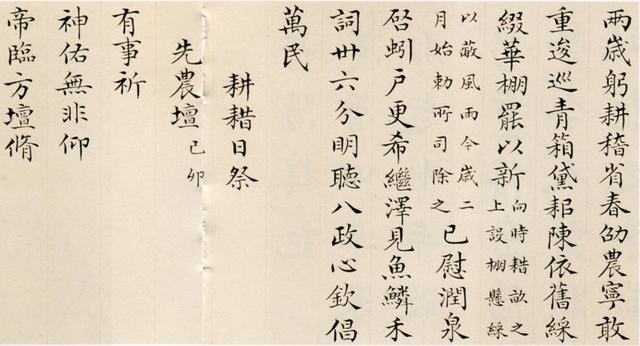 兩歲躬耕稽省春劭農寧敢
重逡巡青箱黛耜陳依舊綵
綴華棚罷以新向時耤畝之上設棚懸綵
以蔽風雨今歲二月始勅所司除之已慰潤泉
启蚓戶更希繼澤見魚鱗禾
詞卅六分明聽八政心欽倡
萬民
耕耤日祭
先農壇己卯
有事祈
神佑無非仰
帝臨方壇脩